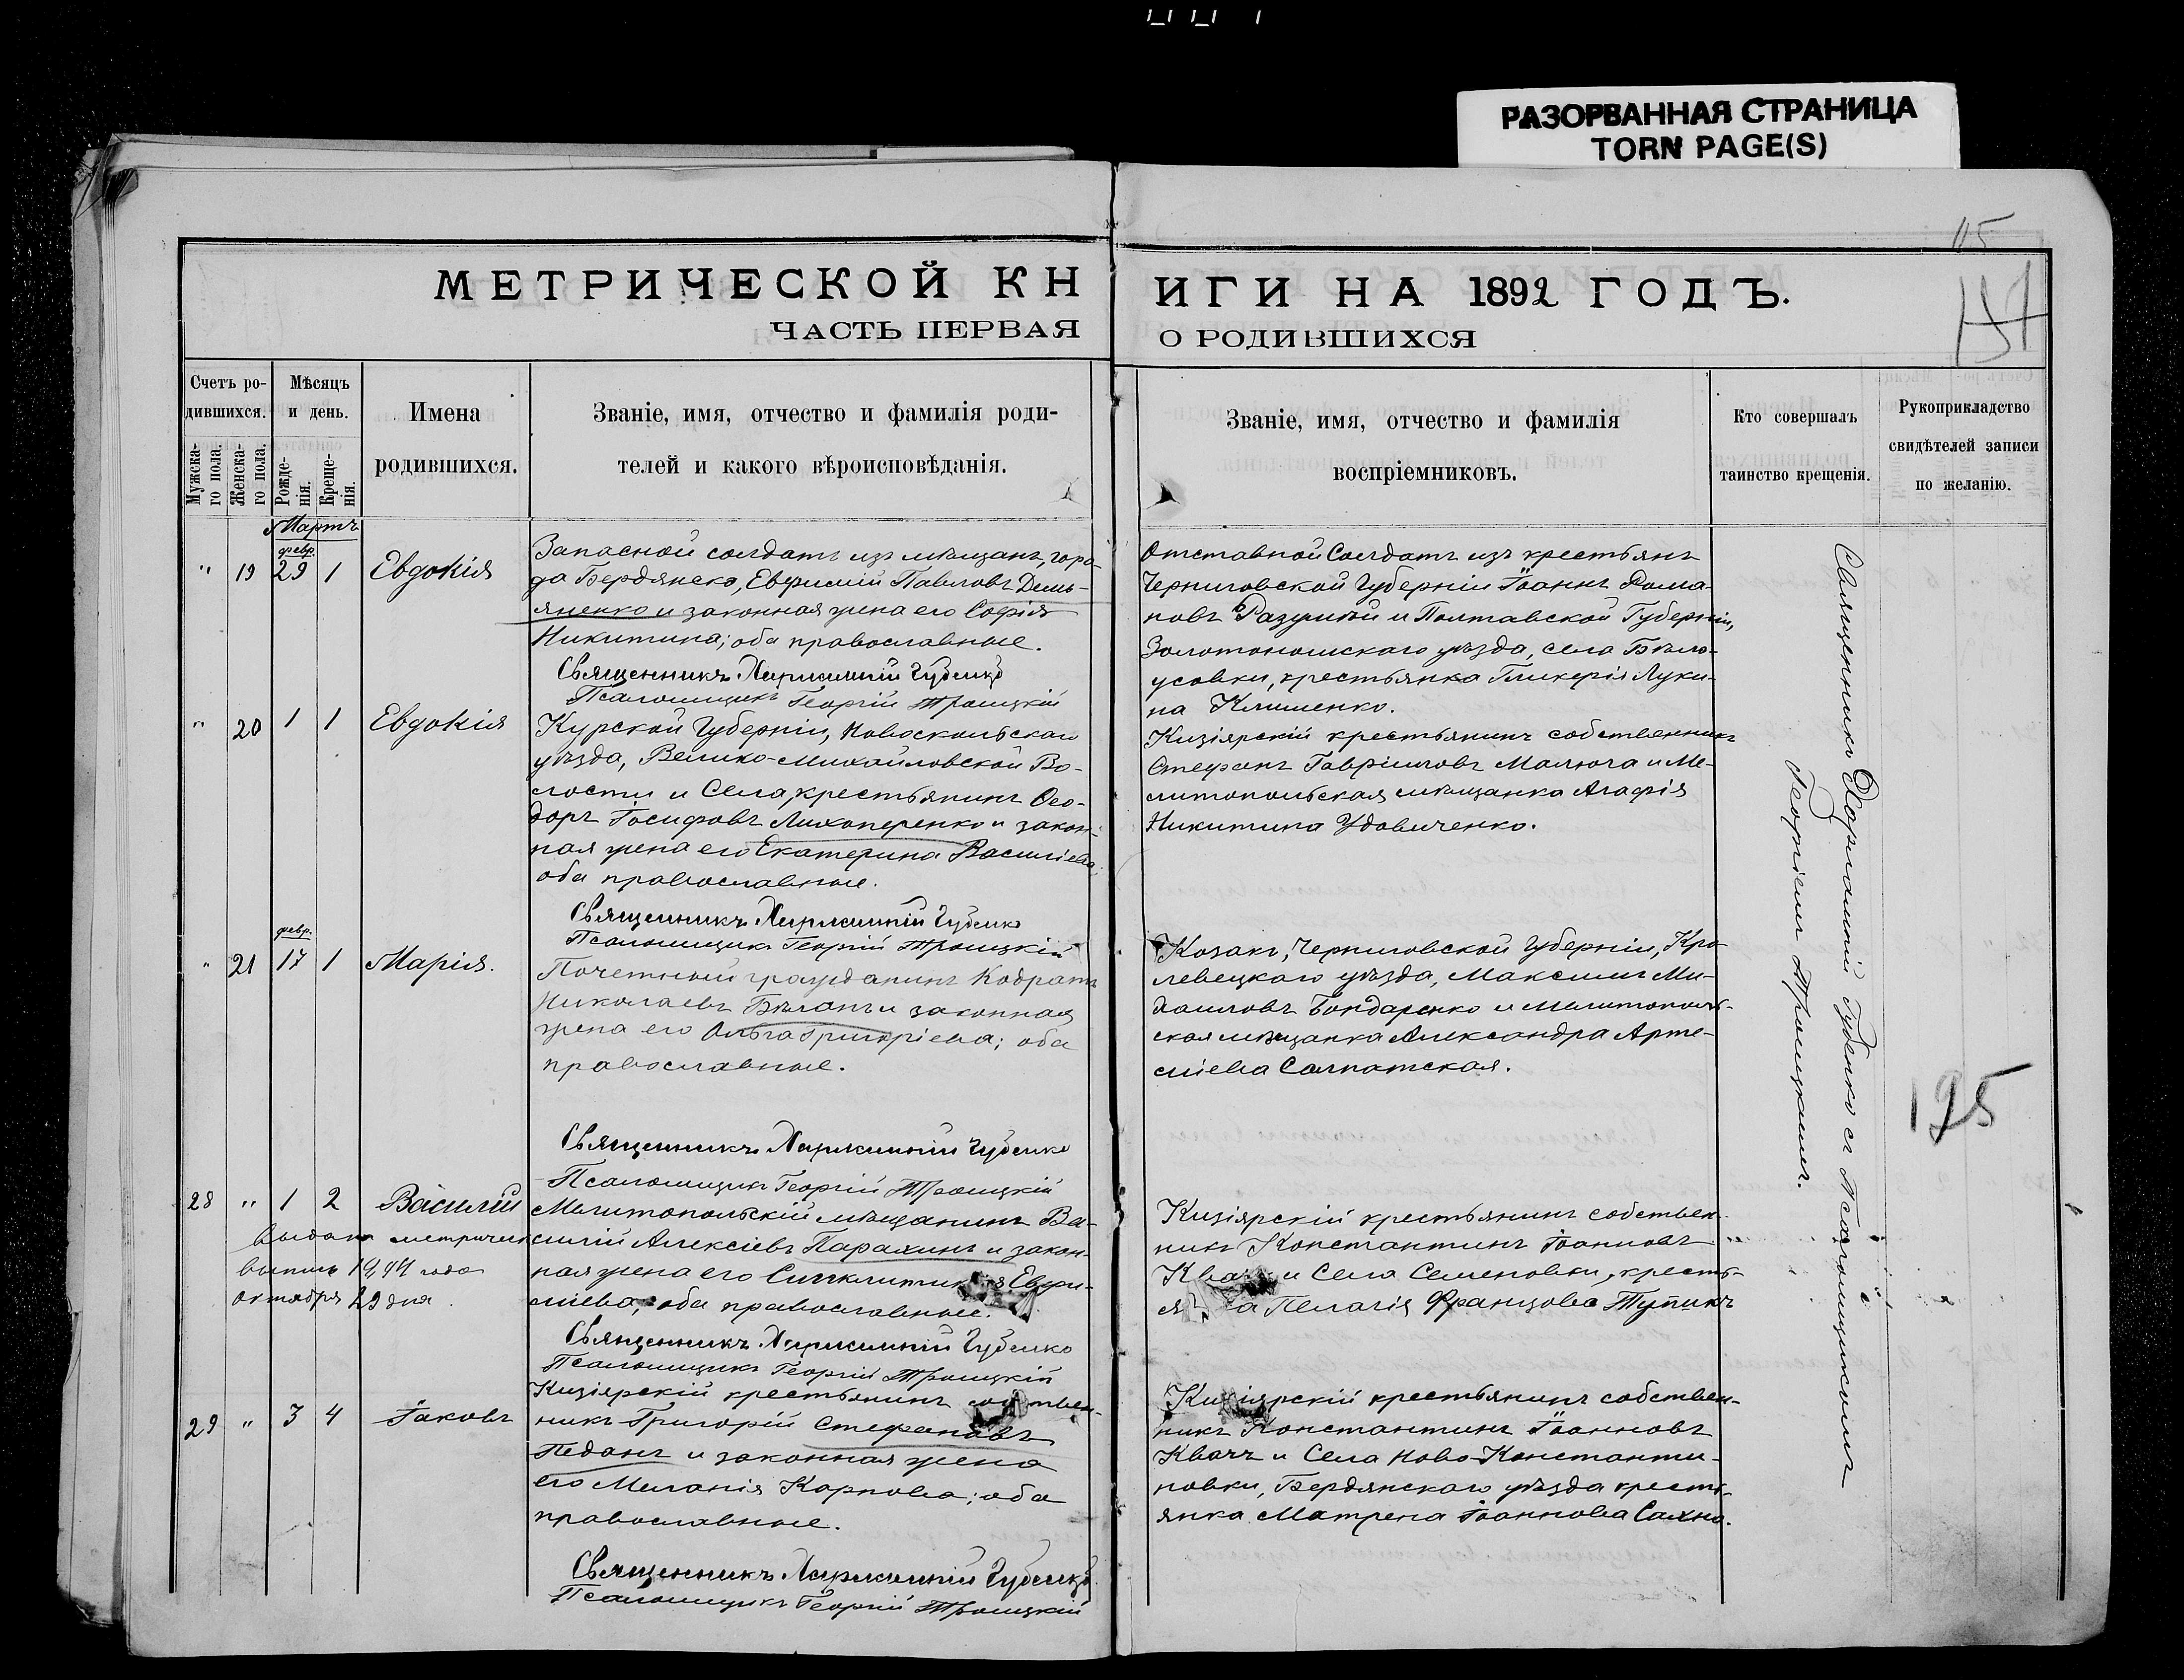 РАЗОРВАННАЯ СТРАНИЦА
TORN PAGE(S)
115
МЕТРИЧЕСКОЙ КН
ИГИ НА 1892 ГОДЪ.
ЧАСТЬ ПЕРВАЯ
О РОДИВШИХСЯ
Счетъ ро-
дившихся.
Мужска-
го пола.
Женска-
го пола.
Мѣсяцъ
и день.
Рожде-
нія.
Креще-
нія.
Имена
родившихся.
Званіе, имя, отчество и фамилія роди-
телей и какого вѣроисповѣданія.
Званіе, имя, отчество и фамилія
воспріемниковъ.
Кто совершалъ
таинство крещенія.
Рукоприкладство
свидѣтелей записи
по желанію.
Мартъ
февр.
" 19 29 1 Евдокія
Запасной солдатъ изъ мѣщанъ, горо-
да Бердянска, Евфимій Павловъ Демь-
яненко и законная жена его Софія
Никитина; оба православные.
Священникъ Харлампій Губенко
Псаломщикъ Георгій Троицкій
Отставной Солдатъ изъ крестьянъ
Черниговской Губерніи Іоаннъ Рома-
новъ Разумѣй и Полтавской Губерніи,
Золотоношскаго уѣзда, села Бѣло-
усовки, крестьянка Гликерія Луки-
на Клименко.
" 20 1 1 Евдокія
Курской Губерніи, Новоскольскаго
уѣзда, Велико-Михайловской Во-
лости и Села, крестьянинъ Ѳео-
доръ Іосифовъ Лихоперенко и закон-
ная жена его Екатерина Василіева
оба православные.
Священникъ Харлампій Губенко
Псаломщикъ Георгій Троицкій
Кизіярскій крестьянинъ собственникъ
Стефанъ Гавріиловъ Малюга и Ме-
литопольская мѣщанка Агафія
Никитина Удовиченко.
февр.
" 21 17 1 Марія.
Почетный гражданинъ Кодратъ
Николаевъ Бѣланъ и законная
жена его Ольга Григоріева; оба
православные.
Священникъ Харлампій Губенко
Псаломщикъ Георгій Троицкій
Козакъ, Черниговской Губерніи, Кро-
левецкаго уѣзда, Максимъ Ми-
хаиловъ Бондаренко и Мелитополь-
ская мѣщанка Александра Арте-
міева Салпатская.
28 " 1 2 Василій
Выдана метрическ
выпись 1944 года
октября 29 дня.
Мелитопольскій мѣщанинъ Ва-
силій Алексіевъ Парахинъ и закон-
ная жена его Синклитикія Евфи-
міева, оба православные.
Священникъ Харлампій Губенко
Псаломщикъ Георгій Троицкій
Кизіярскій крестьянинъ собствен-
никъ Константинъ Іоанновъ
Квачъ и Села Семеновки, кресть-
я на Пелагія Францова Тупикъ
29 " 3 4 Іаковъ
Кизіярскій крестьянинъ собствен-
никъ Григорій Стефановъ
Педанъ и законная жена
его Меланія Карпова; оба
православные.
Священникъ Харлампій Губенко
Псаломщикъ Георгій Троицкій
Кизіярскій крестьянинъ собствен-
никъ Константинъ Іоанновъ
Квачъ и Села Ново-Константи-
новки, Бердянскаго уѣзда кресть-
янка Матрена Іоаннова Сахно.
Священникъ Харлампій Губенко съ Псаломщикомъ
Георгіемъ Троицкимъ.
195